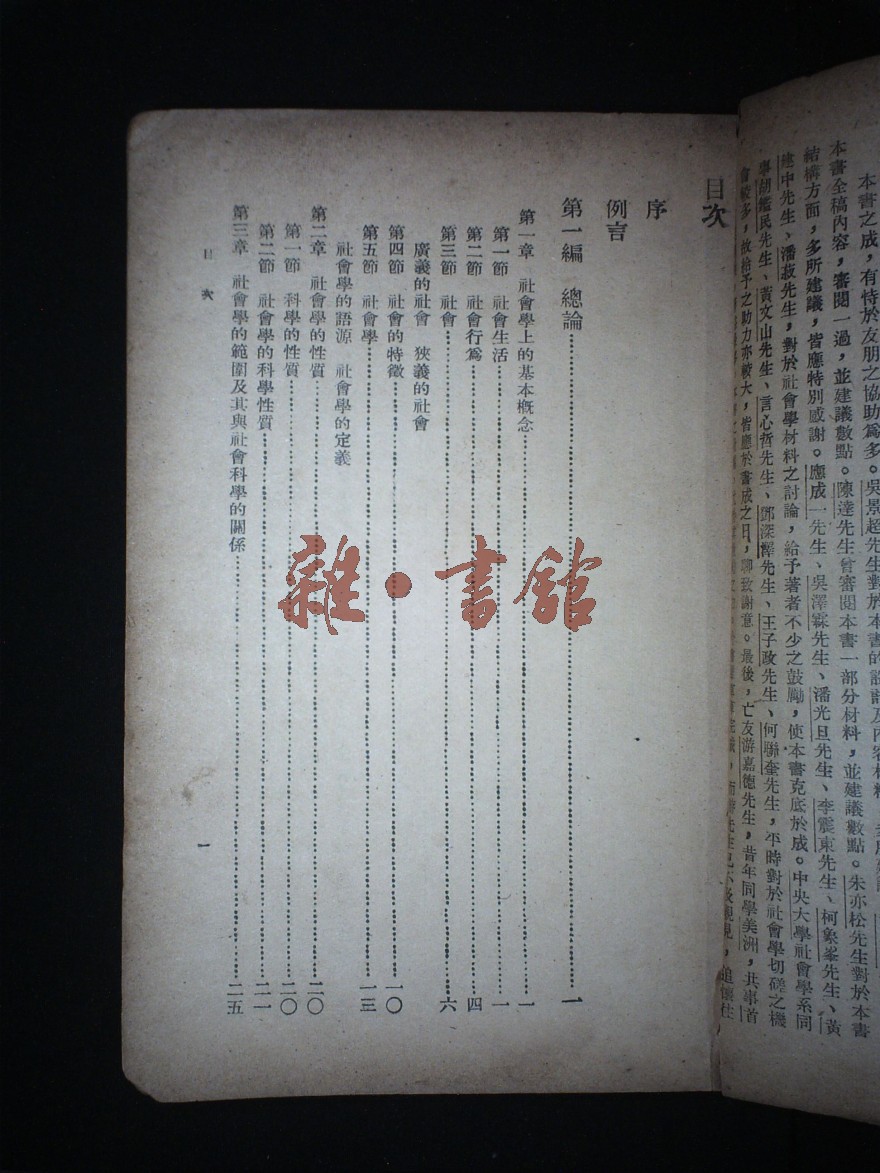 本書之成，有恃於友朋之協助爲多。吳景超先生對於本書的設計及內容材料，
本書全稿內容，審閱一過，並建議數點。陳達先生曾審閱本書一部分材料，並建議數點。朱亦松先生對於本書
結構方面，多所建議，皆應特別感謝。應成一先生、吳澤霖先生、潘光旦先生、李震東先生、柯象峯先生、黃
建中先生、潘菽先生，對於社會學材料之討論，給予著者不少之鼓勵，使本書克底於成。中央大學社會學系同
事胡鑑民先生、黃文山先生、言心哲先生、鄧深澤先生、王子政先生、何聯奎先生，平時對於社會學切磋之機
會較多，故給予之助力亦較大，皆應於書成之日，聊致謝意。最後，亡友游嘉德先生，昔年同學美洲，共事首
目次
序
例言
第一編 總論……一
第一章 社會學上的基本概念……一
第一節 社會生活……一
第二節 社會行爲……四
第三節 社會……六
廣義的社會 狹義的社會
第四節 社會的特徵……一〇
第五節 社會學……一三
社會學的語源 社會學的定義
第二章 社會學的性質……二〇
第一節 科學的性質……二〇
第二節 社會學的科學性質……二一
第三章 社會學的範圍及其與社會科學的關係……二五
目次 一
雜·書館